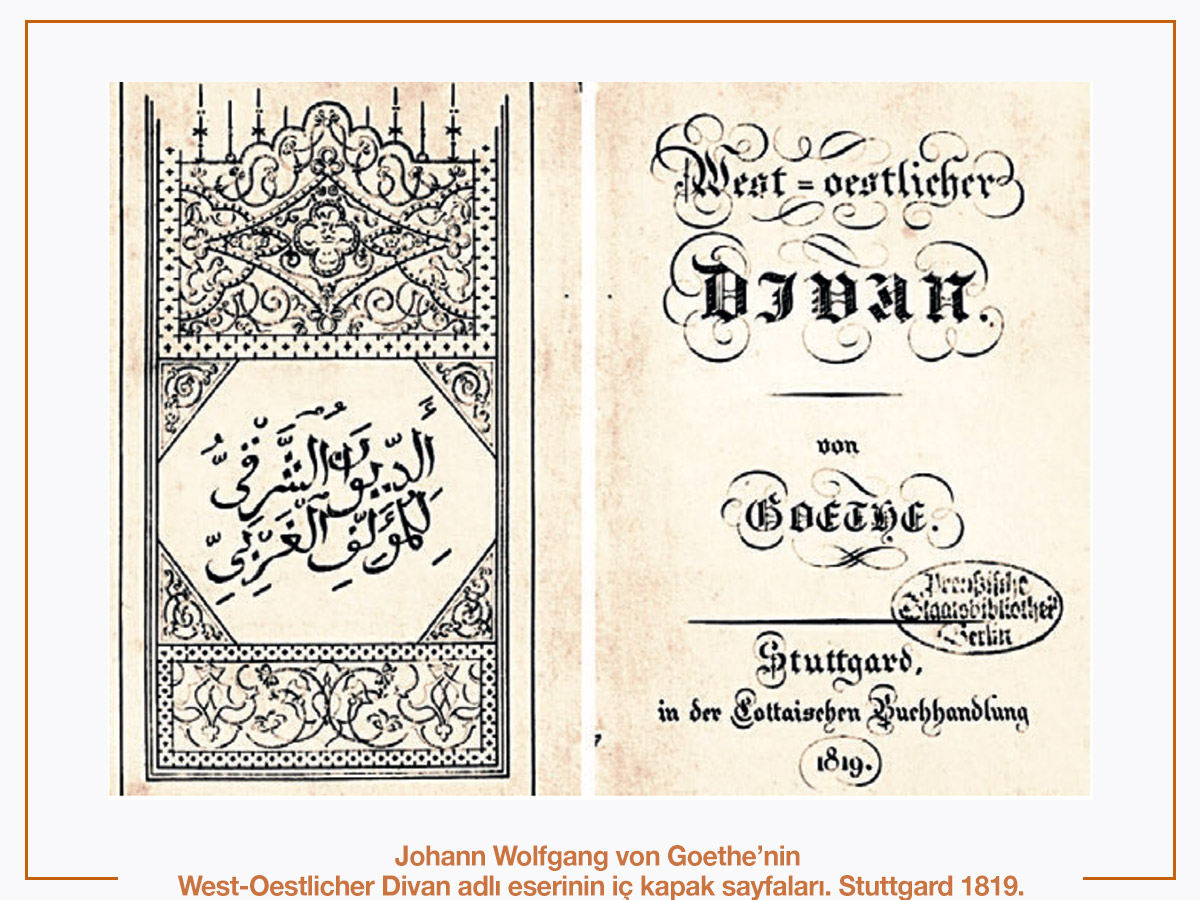 أَلدِّيوَانُ الشَّرْقِيُّ
لِلْمُؤَلِّفِ الْغَرْبِيِّ
West=oestlicher
DIVAN.
von
GOETHE.
Preußische
Staatsbibliothek
Berlin
Stuttgard,
in der Cottaischen Buchhandlung
1819.
Johann Wolfgang von Goethe’nin
West-Oestlicher Divan adlı eserinin iç kapak sayfaları. Stuttgard 1819.